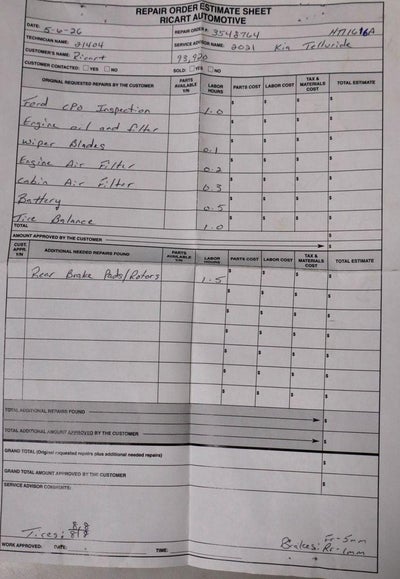 REPAIR ORDER ESTIMATE SHEET
RICART AUTOMOTIVE
DATE: 5-6-26 REPAIR ORDER #: 3548764
TECHNICIAN NAME: 21404 SERVICE ADVISOR NAME: 2021 Kia Telluride
CUSTOMER'S NAME: Ricart 93,920
CUSTOMER CONTACTED: YES NO SOLD: YES NO
ORIGINAL REQUESTED REPAIRS BY THE CUSTOMER PARTS AVAILABLE Y/N LABOR HOURS PARTS COST LABOR COST TAX & MATERIALS COST TOTAL ESTIMATE
Ford CPO Inspection 1.0 $ $ $ $
Engine oil and filter $ $ $ $
Wiper Blades 0.1 $ $ $ $
Engine Air Filter 0.2 $ $ $ $
Cabin Air Filter 0.3 $ $ $ $
Battery 0.5 $ $ $ $
Tire Balance 1.0 $ $ $ $
TOTAL
AMOUNT APPROVED BY THE CUSTOMER $
CUST. APPR. Y/N ADDITIONAL NEEDED REPAIRS FOUND PARTS AVAILABLE Y/N LABOR HOURS PARTS COST LABOR COST TAX & MATERIALS COST TOTAL ESTIMATE
Rear Brake Pads/Rotors 1.5 $ $ $ $
$ $ $ $
$ $ $ $
$ $ $ $
$ $ $ $
$ $ $ $
$ $ $ $
TOTAL ADDITIONAL REPAIRS FOUND $
TOTAL ADDITIONAL AMOUNT APPROVED BY THE CUSTOMER $
GRAND TOTAL (Original requested repairs plus additional needed repairs)
GRAND TOTAL AMOUNT APPROVED BY THE CUSTOMER $
SERVICE ADVISOR COMMENTS:
Tires: 8/8 8/8
Brakes: Fr-5mm
Rr-1mm
WORK APPROVED: DATE: TIME: